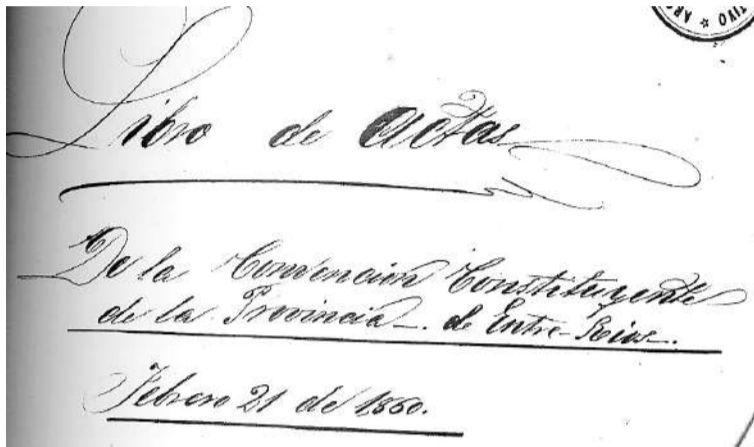 Libro de Actas
De la Convencion Constituyente
de la Provincia de Entre-Rios.
Febrero 21 de 1860.